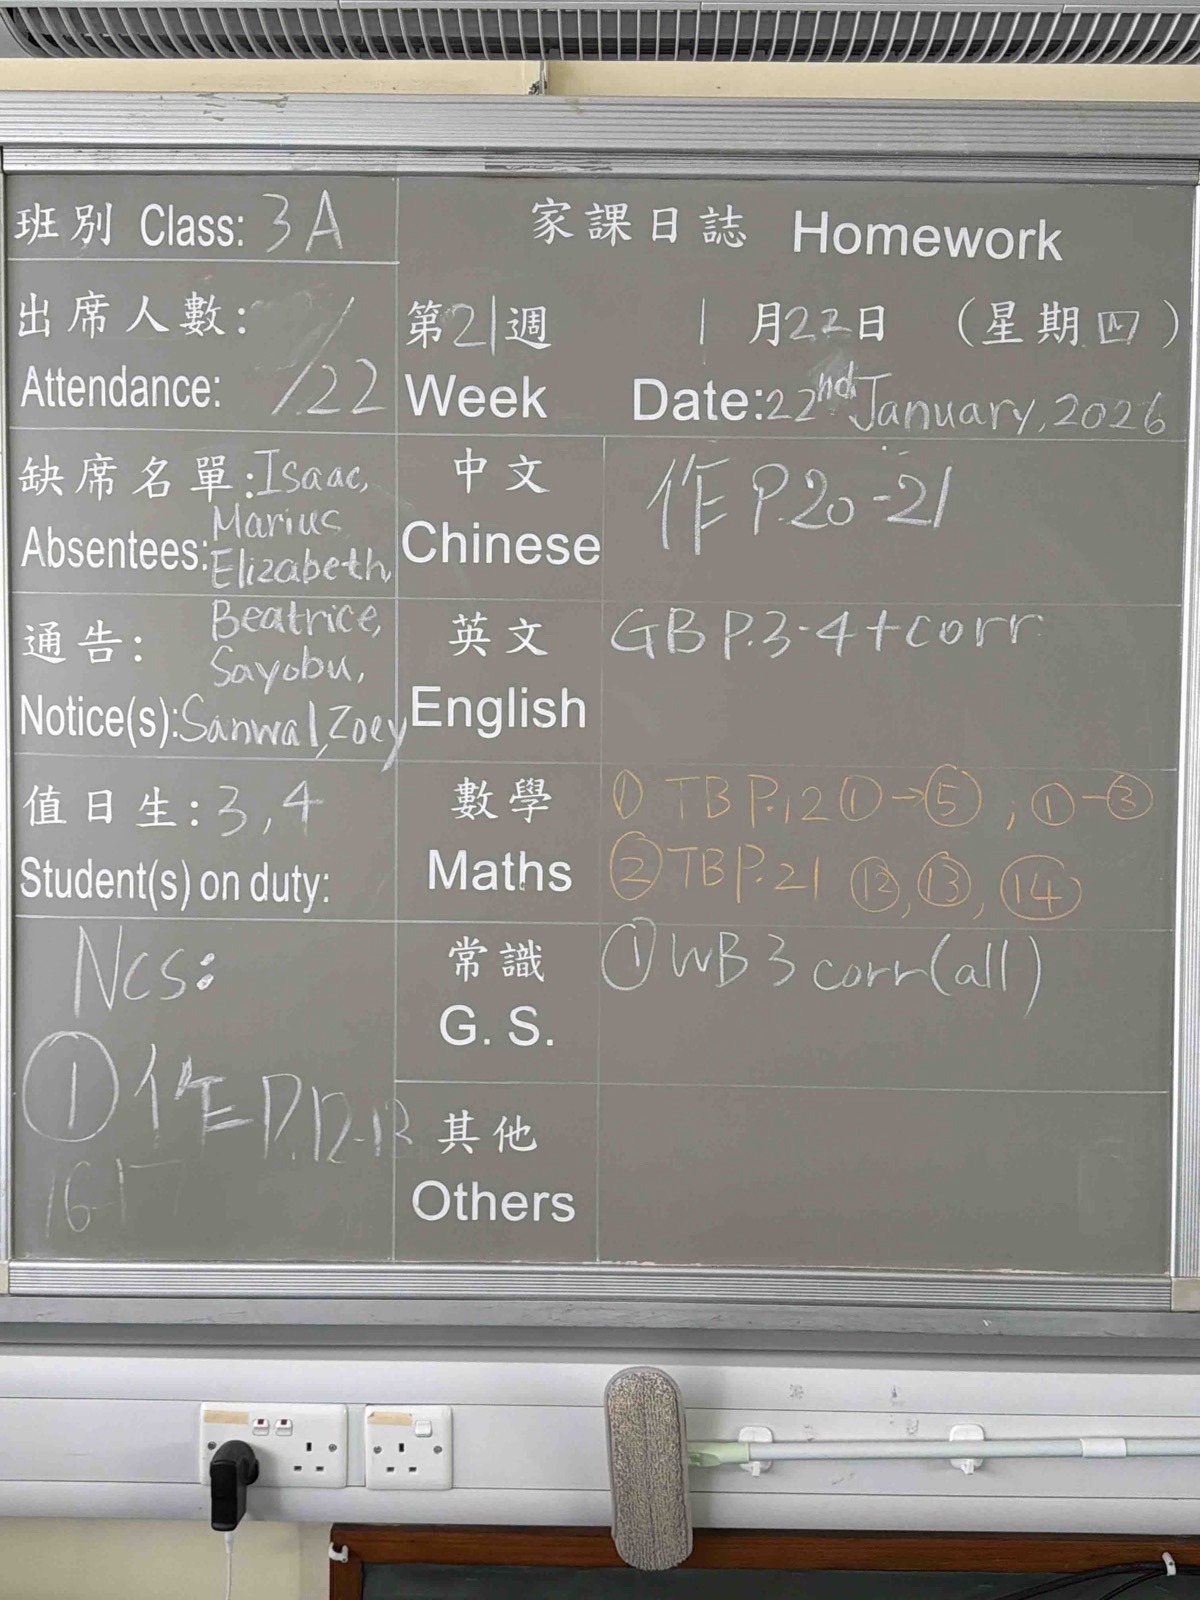 班別 Class: 3A
家課日誌 Homework
出席人數:
Attendance: /22
第21週 1月22日 (星期四)
Week Date: 22nd January, 2026
缺席名單: Isaac,
Marius
Absentees: Elizabeth,
Beatrice,
Sayobu,
通告:
Notice(s): Sanwal, Zoey
值日生: 3, 4
Student(s) on duty:
Ncs:
① 作 P.12-13
16-17
中文 作 P.20-21
Chinese
英文 GB P.3-4+corr
English
數學 ① TB P.12 ①→⑤, ①-③
Maths ② TB P.21 ⑫, ⑬, ⑭
常識 ① WB 3 corr(all)
G. S.
其他
Others